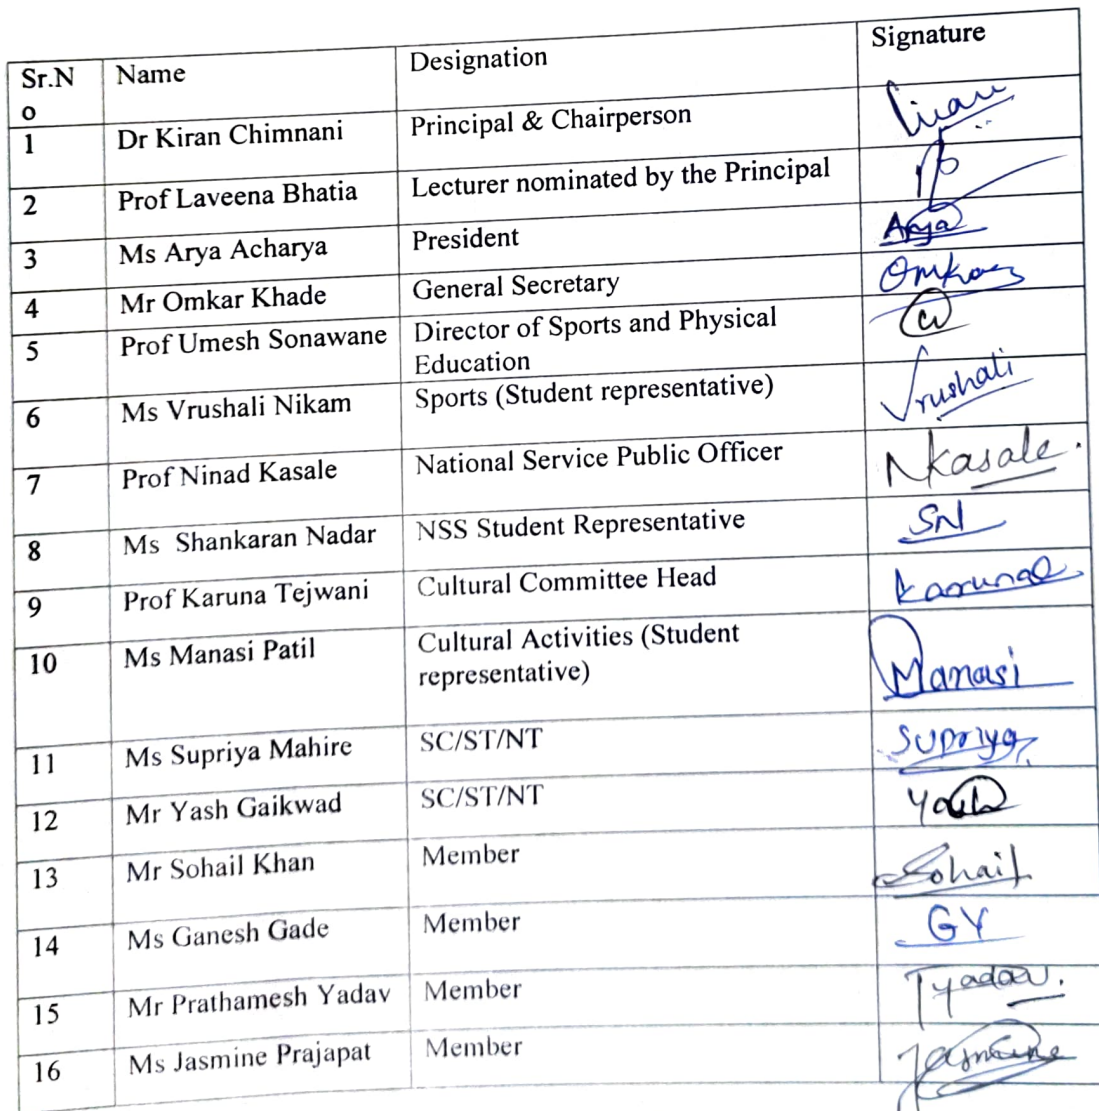 Sr.N Name Designation Signature
o
1 Dr Kiran Chimnani Principal & Chairperson
2 Prof Laveena Bhatia Lecturer nominated by the Principal
3 Ms Arya Acharya President Arya
4 Mr Omkar Khade General Secretary Omkar
5 Prof Umesh Sonawane Director of Sports and Physical
Education
6 Ms Vrushali Nikam Sports (Student representative) Vrushali
7 Prof Ninad Kasale National Service Public Officer NKasale.
8 Ms Shankaran Nadar NSS Student Representative SN
9 Prof Karuna Tejwani Cultural Committee Head Karuna
10 Ms Manasi Patil Cultural Activities (Student Manasi
representative)
11 Ms Supriya Mahire SC/ST/NT Supriya
12 Mr Yash Gaikwad SC/ST/NT Yash
13 Mr Sohail Khan Member Sohail
14 Ms Ganesh Gade Member GY
15 Mr Prathamesh Yadav Member
16 Ms Jasmine Prajapat Member Jasmine